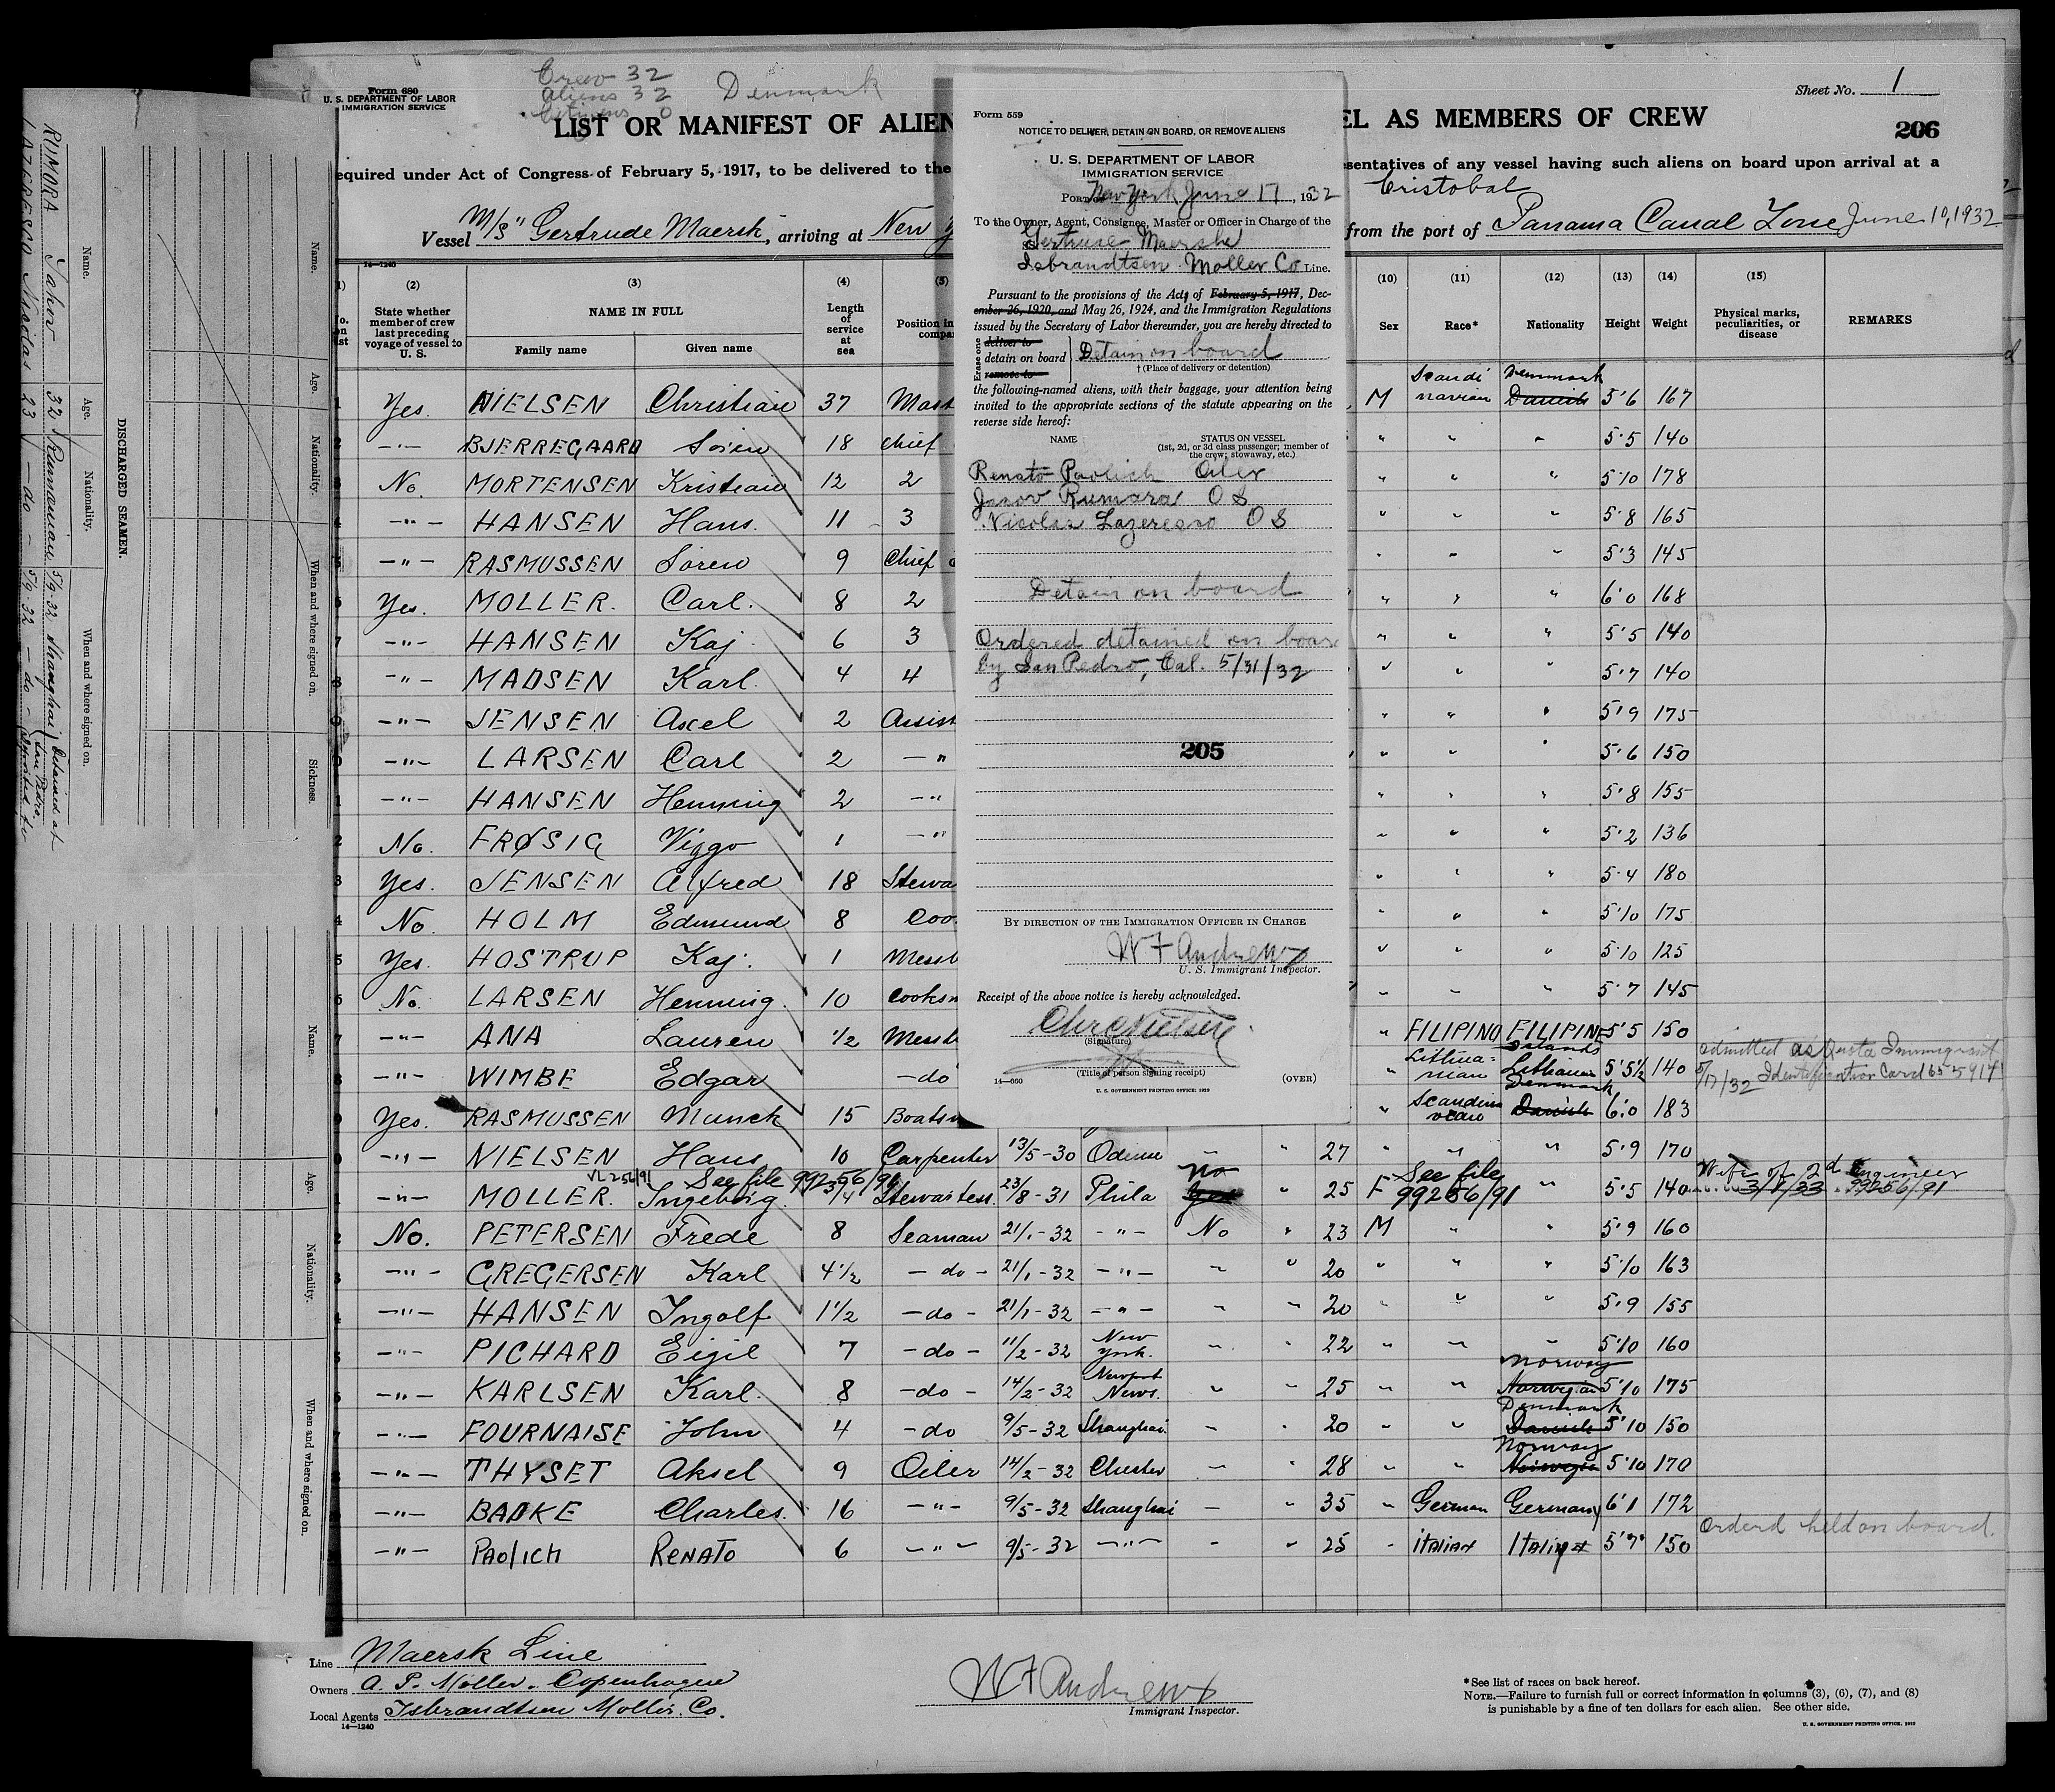 Crew 32
Aliens 32
Citizens 0
Denmark
Form 680
U. S. DEPARTMENT OF LABOR
IMMIGRATION SERVICE
Sheet No. 1
LIST OR MANIFEST OF ALIEN
EL AS MEMBERS OF CREW
206
equired under Act of Congress of February 5, 1917, to be delivered to the
sentatives of any vessel having such aliens on board upon arrival at a
Vessel M/S "Gertrude Maersk, arriving at New Y
Cristobal
from the port of Panama Canal Zone June 10, 1932
14—1240
(2) (3) (4) (5) (10) (11) (12) (13) (14) (15)
State whether member of crew last preceding voyage of vessel to U. S.
NAME IN FULL
Family name Given name
Length of service at sea
Position in
compa
Sex Race* Nationality Height Weight
Physical marks, peculiarities, or disease
REMARKS
Yes. NIELSEN Christian 37 Mast M Scandinavian Denmark Danish 5'6 167
-"- BJERREGAARD Sören 18 Chief " " " 5'5 140
No. MORTENSEN Kristian 12 2 " " " 5'10 178
-"- HANSEN Hans. 11 3 " " " 5'8 165
-"- RASMUSSEN Sören 9 Chief " " " 5'3 145
Yes. MOLLER. Carl. 8 2 " " " 6'0 168
-"- HANSEN Kaj 6 3 " " " 5'5 140
-"- MADSEN Karl. 4 4 " " " 5'7 140
-"- JENSEN Axel 2 Assist " " " 5'9 175
-"- LARSEN Carl 2 -" " " " 5'6 150
-"- HANSEN Henning 2 -" " " " 5'8 155
No. FRØSIG Viggo 1 -" " " " 5'2 136
Yes. JENSEN Alfred 18 Stewa " " " 5'4 180
No. HOLM Edmund 8 Coo " " " 5'10 175
Yes. HOSTRUP Kaj. 1 Messb " " " 5'10 125
No. LARSEN Henning. 10 Cooksm " " " 5'7 145
-"- ANA Lauren 1/2 Messb " FILIPINO FILIPINE Islands 5'5 150
-"- WIMBE Edgar -do " Lithuanian Lithuania 5'5½ 140 admitted as Quota Immigrant
5/17/32 Identification Card 655914
Yes. RASMUSSEN Munck 15 Boatsw " Scandinavian Denmark Danish 6'0 183
-"- NIELSEN Hans 10 Carpenter 13/5-30 Odense " " 27 " " " 5'9 170
VL256/91 See file 99256/91 No See file Wife of 2d Engineer
-"- MOLLER. Ingeborg. 3/4 Stewardess. 23/8-31 Phila Yes " 25 F 99256/91 " 5'5 140 3/8/33 99256/91
No. PETERSEN Frede 8 Seaman 21/1-32 -"- No " 23 M " " 5'9 160
-"- GREGERSEN Karl 4½ -do- 21/1-32 -"- " " 20 " " " 5'10 163
-"- HANSEN Ingolf 1½ -do- 21/1-32 -"- " " 20 " " " 5'9 155
-"- PICHARD Eigil 7 -do- 11/2-32 New York. " " 22 " " " 5'10 160
-"- KARLSEN Karl. 8 -do- 14/2-32 Newport News. " " 25 " " Norway Norwegian 5'10 175
-"- FOURNAISE John 4 -do 9/5-32 Shanghai. - " 20 " " Denmark Danish 5'10 150
-"- THYSET Aksel 9 Oiler 14/2-32 Chester - " 28 " " Norway Norwegian 5'10 170
-"- BADKE Charles. 16 -"- 9/5-32 Shanghai - " 35 " German Germany 6'1 172
Orderd held on board.
-"- PAOlICH RENATO 6 -"- 9/5-32 -"- - " 25 " ITALIAN ITALY 5'7" 150
Line Maersk Line
Owners A. P. Moller. Copenhagen
Local Agents Isbrandtsen Moller. Co.
14—1240
W F Andrews
Immigrant Inspector.
*See list of races on back hereof.
NOTE.—Failure to furnish full or correct information in columns (3), (6), (7), and (8)
is punishable by a fine of ten dollars for each alien. See other side.
U. S. GOVERNMENT PRINTING OFFICE: 1929
Form 559
NOTICE TO DELIVER, DETAIN ON BOARD, OR REMOVE ALIENS
U. S. DEPARTMENT OF LABOR
IMMIGRATION SERVICE
Port of New York June 17, 1932
To the Owner, Agent, Consignee, Master or Officer in Charge of the
SS Gertrude Maerske
Isbrandtsen Moller Co Line.
Pursuant to the provisions of the Acts of February 5, 1917, Dec-
ember 26, 1920, and May 26, 1924, and the Immigration Regulations
issued by the Secretary of Labor thereunder, you are hereby directed to
Erase one
deliver to
detain on board
remove to
Detain on board
† (Place of delivery or detention)
the following-named aliens, with their baggage, your attention being
invited to the appropriate sections of the statute appearing on the
reverse side hereof:
NAME STATUS ON VESSEL
(1st, 2d, or 3d class passenger; member of
the crew; stowaway, etc.)
Renato Paolich Oiler
Jacov Rumara O S
Nicolas Lazeresso O S
Detain on board
Ordered detained on boar
by San Pedro, Cal. 5/31/32
205
BY DIRECTION OF THE IMMIGRATION OFFICER IN CHARGE
W F Andrews
U. S. Immigrant Inspector.
Receipt of the above notice is hereby acknowledged.
Chr Nielsen
(Signature)
(Title of person signing receipt)
14—660
(OVER)
U. S. GOVERNMENT PRINTING OFFICE: 1928
DISCHARGED SEAMEN.
Name. Age. Nationality. When and where signed on.
RUMORA Jakov 32 Rumanian 5/9-32 Shanghai Detained at
LAZERESCO Nicolas 23 -do- 5/9-32 -do- San Pedro.
Name. Age. Nationality. When and where signed on. Sickness.
Name. Age. Nationality. When and where signed on.